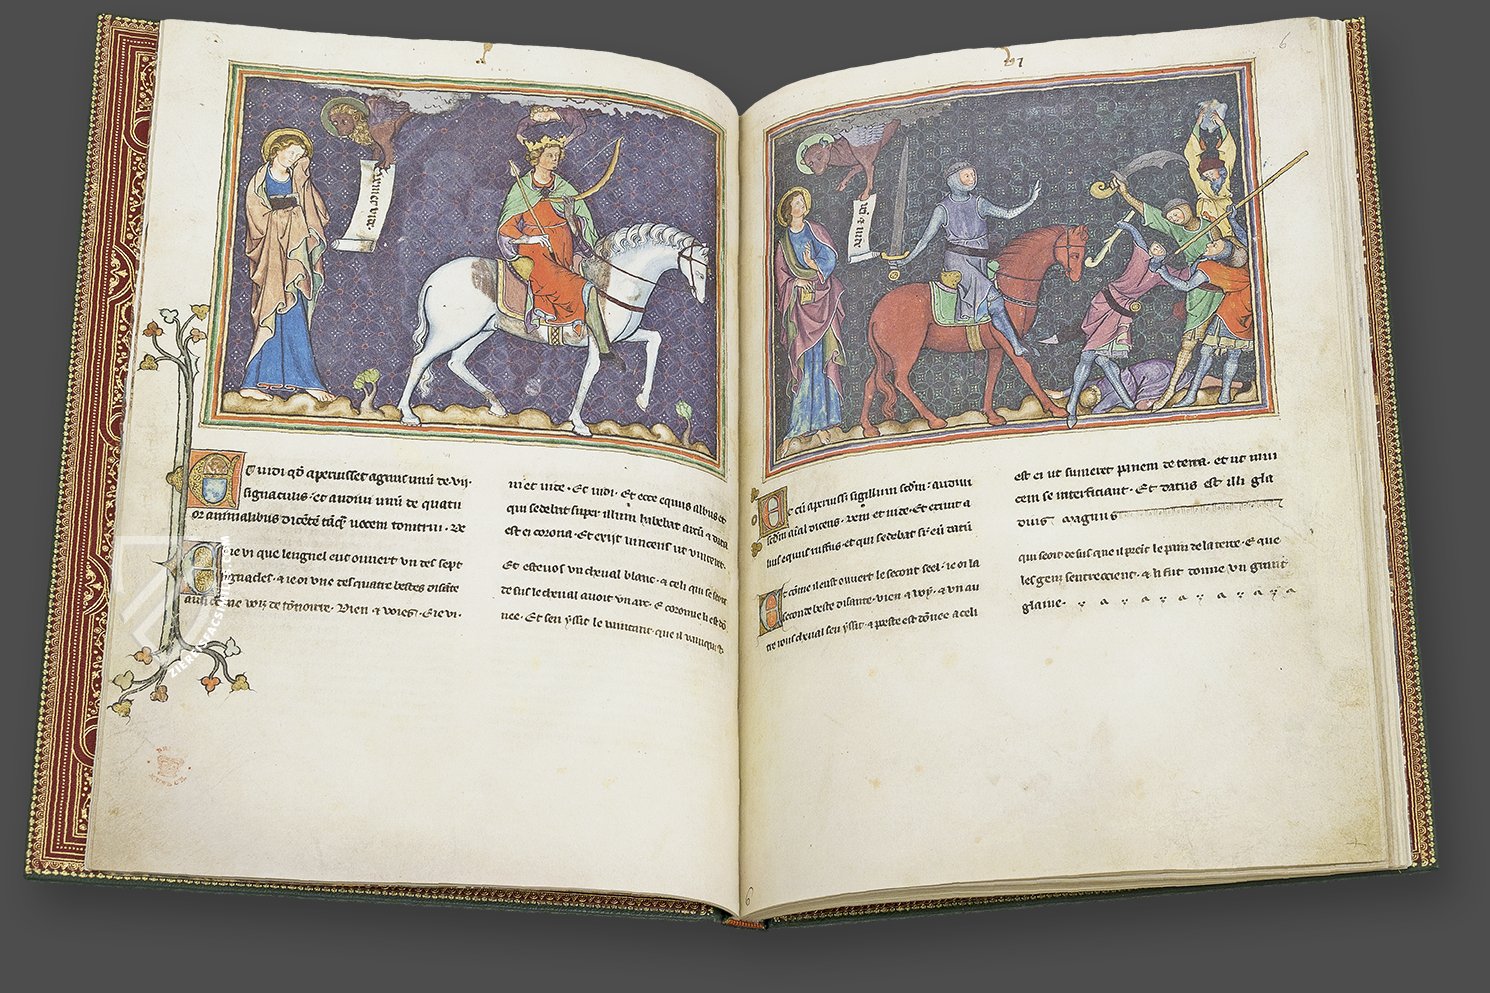 7
6
veni et vide
veni et vide
Et vidi qd aperuisset agnus unu de vij
signaculis · et audivi unu de quatu
or animalibus dicete taq vocem tonitrui · Ve
ni et vide · Et vidi · Et ecce equus albus et
qui sedebat super illum habebat arcu & data
est ei corona · Et exijt vincens ut vinceret ·
Et ie vi que lengnel eut ouvert un des sept
signacles · & ie oi une des quatre bestes disante
aussi come voiz de tonoirre · Vien & voies · E ie vi ·
Et esteuos vn cheual blanc · & celi qui se seoit
de sus le cheual auoit vn arc · E coronne li est do
nee · Et sen yssit le
Et cu aperuisset sigillum scdm · audiui
scdm aial dicens · veni et uide · Et exiuit a
lius equus ruffus · et qui sedebat sr eu datu
est ei ut sumeret pacem de terra · et ut inui
cem se interficiant · Et datus est illi gla
dius magnus
Et come il enst ouuert le second seel · ie oi la
seconde beste disante · vien & voy · & vn au
tre rous cheual sen yssit · & a celi
qui seoit desus que il preist le pais de la terre · E que
les genz sentreocient · & li fut donne vn grant
glaiue ·
6
ZIEREIS FACSIMILES.com